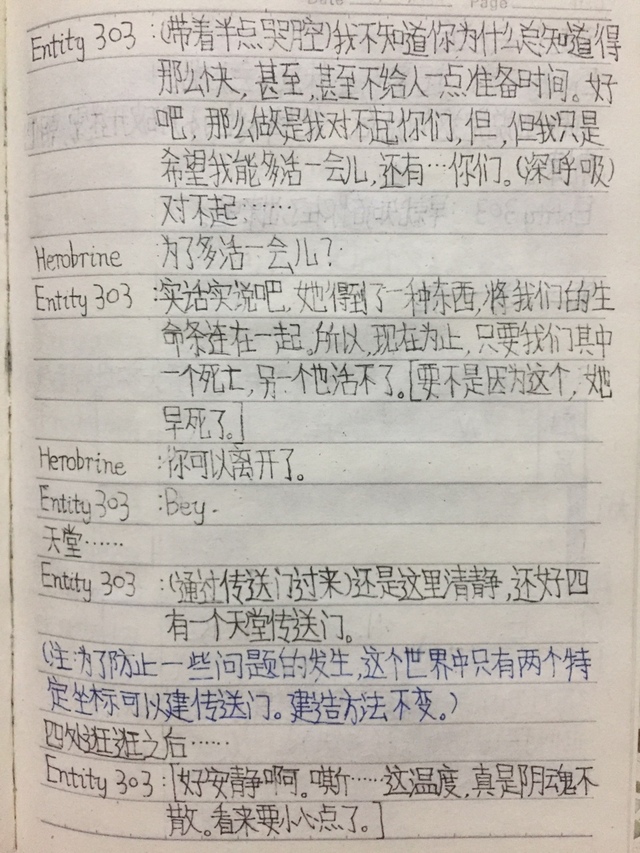 Entity 303 :(带着半点哭腔)我不知道你为什么总知道得
那么快，甚至，甚至不给人一点准备时间。好
吧，那么做是我对不起你们，但，但我只是
希望我能多活一会儿，还有…你们。(深呼吸)
对不起……
Herobrine :为了多活一会儿？
Entity 303 :实话实说吧，她得到了一种东西，将我们的生
命条连在一起。所以，现在为止，只要我们其中
一个死亡，另一个也活不了。[要不是因为这个，她
早死了。]
Herobrine :你可以离开了。
Entity 303 :Bey.
天堂……
Entity 303 :(通过传送门过来)还是这里清静，还好四
有一个天堂传送门。
(注:为了防止一些问题的发生，这个世界中只有两个特
定坐标可以建传送门。建造方法不变。)
四处逛逛之后……
Entity 303 :[好安静啊。嘶……这温度，真是阴魂不
散。看来要小心点了。]